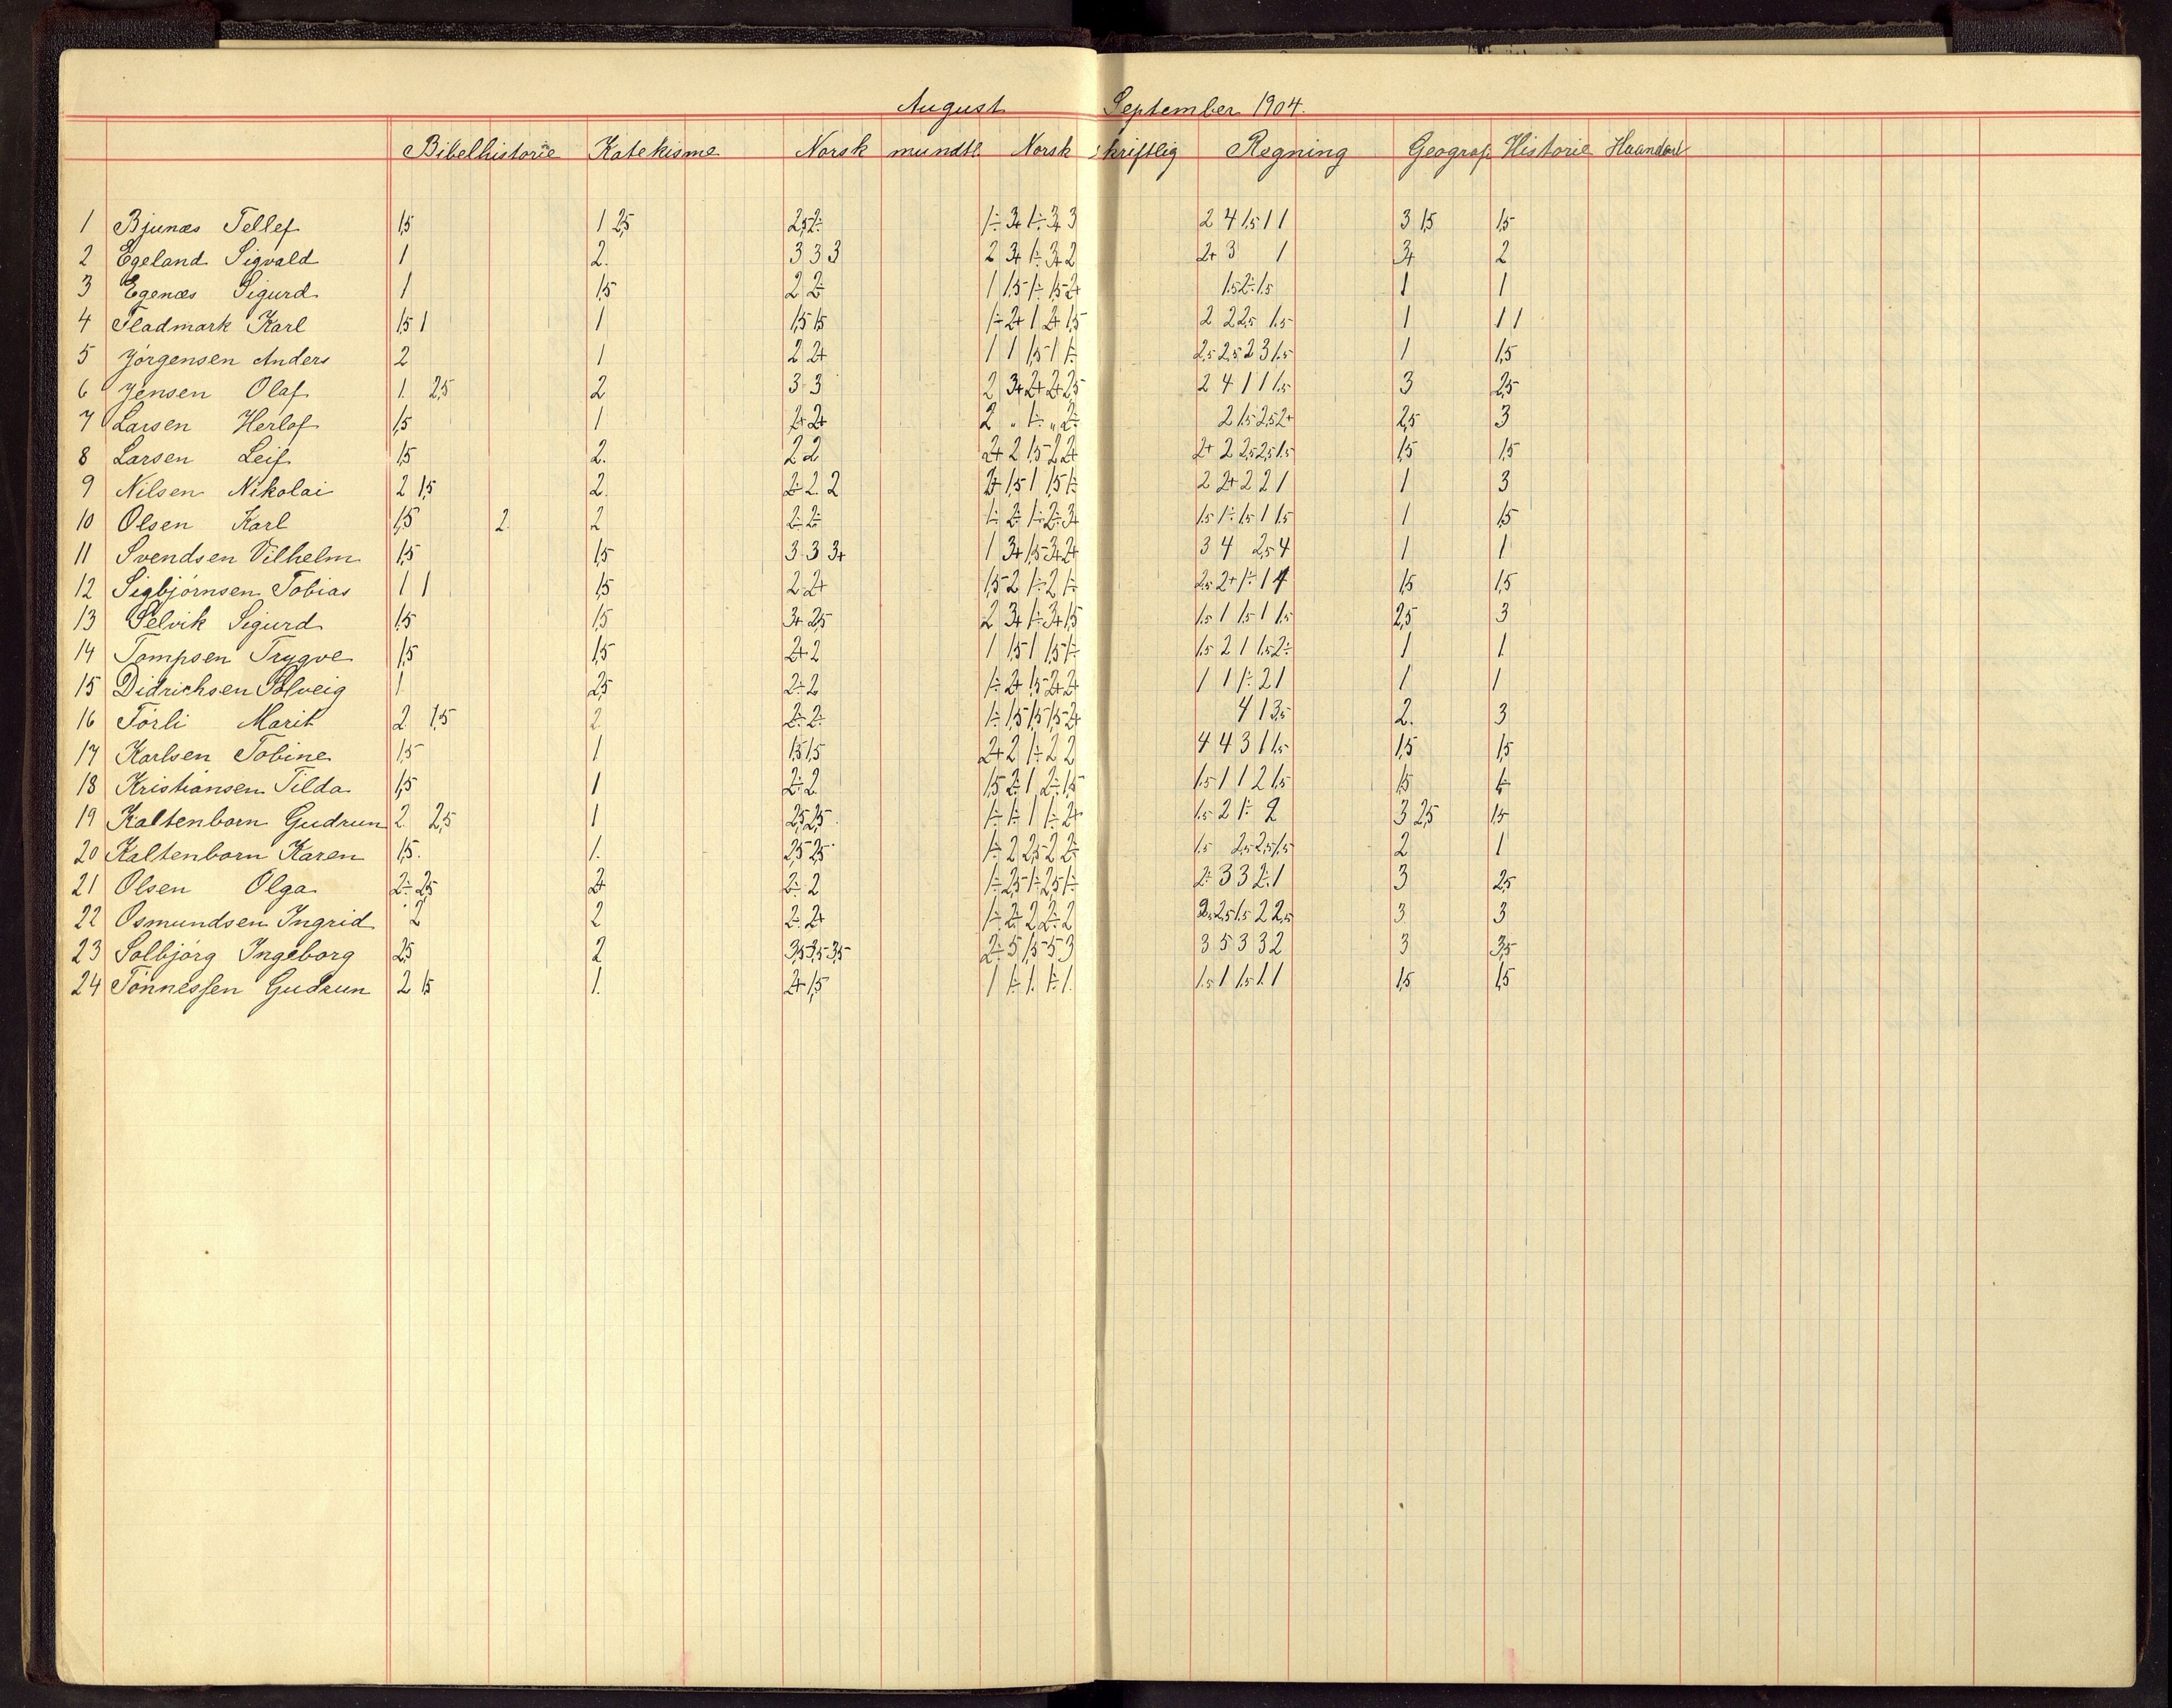 August September 1904.
Bibelhistorie Katekisme Norsk mundtl. Norsk skriftlig Regning Geografi Historie
1 Bjunæs Tellef 1,5 1 2,5 2,5 2÷ 1÷ 3+ 1÷ 3+ 3 2 4 1.5 1 1 3 1,5 1,5
2 Egeland Sigvald 1 2. 3 3 3 2 3+ 1÷ 3+ 2 2+ 3 1 3+ 2
3 Egenæs Sigurd 1 1,5 2 2÷ 1 1,5 1÷ 1,5 2+ 1.5 2÷ 1.5 1 1
4 Fladmark Karl 1,5 1 1 1,5 1,5 1÷ 2+ 1 2+ 1,5 2 2 2,5 1.5 1 1 1
5 Jörgensen Anders 2 1 2 2+ 1 1 1,5 1 1÷ 2.5 2.5 2 3 1.5 1 1,5
6 Jensen Olaf 1. 2,5 2 3 3 2 3+ 2+ 2+ 2,5 2 4 1 1 1.5 3 2,5
7 Larsen Herlof 1,5 1 2+ 2+ 2 „ 1÷ „ 2÷ 2 1.5 2.5 2+ 2,5 3
8 Larsen Leif 1,5 2. 2 2 2+ 2 1,5 2 2+ 2+ 2 2.5 2.5 1.5 1,5 1,5
9 Nilsen Nikolai 2 1,5 2. 2÷ 2 2 2+ 1,5 1 1,5 1÷ 2 2+ 2 2 1 1 3
10 Olsen Karl 1,5 2. 2 2÷ 2÷ 1÷ 2÷ 1÷ 2÷ 3+ 1.5 1÷ 1.5 1 1.5 1 1,5
11 Svendsen Vilhelm 1,5 1,5 3 3 3+ 1 3+ 1,5 3+ 2+ 3 4 2.5 4 1 1
12 Sigbjörnsen Tobias 1 1 1,5 2 2+ 1,5 2 1÷ 2 1÷ 2.5 2+ 1÷ 1 4 1,5 1,5
13 Selvik Sigurd 1,5 1,5 3+ 2,5 2 3+ 1÷ 3+ 1,5 1.5 1 1.5 1 1.5 2,5 3
14 Tompsen Trygve 1,5 1,5 2+ 2 1 1,5 1 1,5 1÷ 1.5 2 1 1.5 2÷ 1 1
15 Didrichsen Solveig 1 2,5 2÷ 2 1÷ 2+ 1,5 2+ 2+ 1 1 1÷ 2 1 1 1
16 Törli Marit 2 1,5 2 2÷ 2÷ 1÷ 1,5 1,5 1,5 2+ 4 1 3.5 2. 3
17 Karlsen Tobine 1,5 1 1,5 1,5 2+ 2 1÷ 2 2 4 4 3 1 1.5 1,5 1,5
18 Kristiansen Tilda 1,5 1 2÷ 2 1,5 2÷ 1 2÷ 1,5 1.5 1 1 2 1.5 1,5
19 Kaltenborn Gudrun 2 2,5 1 2,5 2,5 1÷ 1÷ 1 1÷ 2+ 1.5 2 1÷ 2 3 2,5 1,5
20 Kaltenborn Karen 1,5. 1. 2,5 2,5 1÷ 2 2,5 2 2÷ 1.5 2.5 2.5 1.5 2 1
21 Olsen Olga 2÷ 2,5 2+ 2÷ 2 1÷ 2,5 1÷ 2,5 1÷ 2÷ 3 3 2÷ 1 3 2,5
22 Osmundsen Ingrid 2 2 2÷ 2+ 1÷ 2÷ 2 2÷ 2 2. 2.5 1.5 2 2.5 3 3
23 Solbjörg Ingeborg 2,5 2 3,5 3,5 3,5 2÷ 5 1,5 5 3 3 5 3 3 2 3 3,5
24 Tönnessen Gudrun 2 1,5 1. 2+ 1,5 1 1÷ 1. 1÷ 1. 1.5 1 1.5 1. 1 1,5 1,5